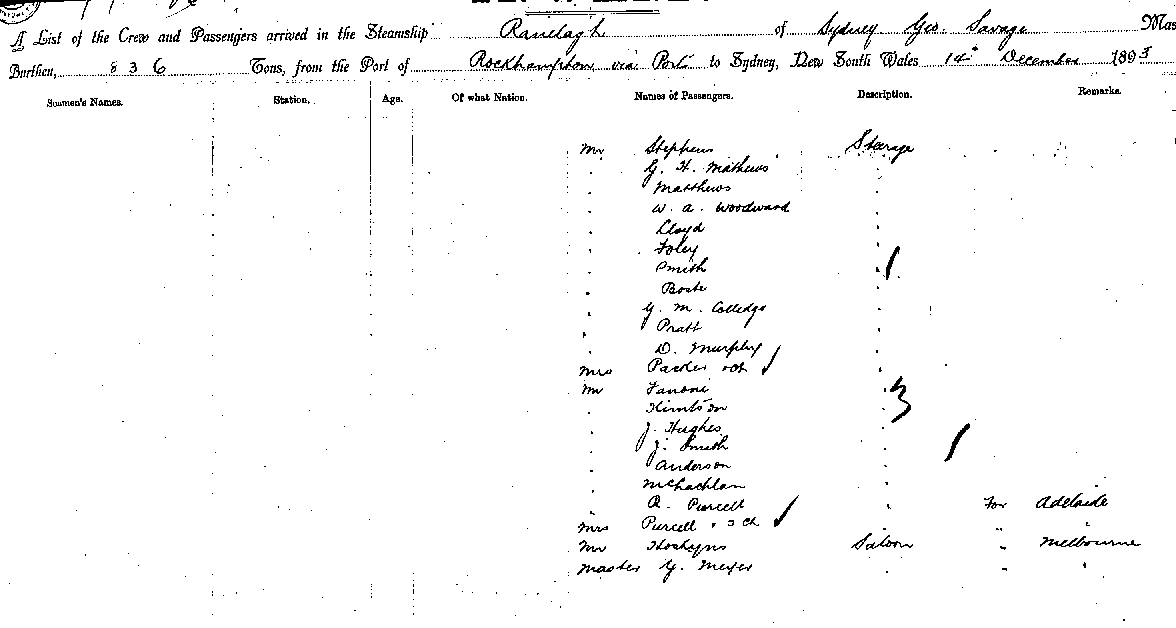 A List of the Crew and Passengers arrived in the Steamship Ranelagh of Sydney Geo. Savage Mas
Burthen, 836 Tons, from the Port of Rockhampton via Ports to Sydney, New South Wales 14th December 1893
Seamen's Names. Station. Age. Of what Nation. Names of Passengers. Description. Remarks.
Mr Stephens Steerage
" G. H. Mathews "
" Matthews "
" W. A. Woodward "
" Lloyd "
" Foley "
" Smith "
" "
" G. M. Colledge "
" Pratt "
" D. Murphy "
Mrs Packer "
Mr Fanoni "
" "
" J. Hughes "
" J. Smith "
" Anderson "
" McLachlan "
" R. Purcell " For Adelaide
Mrs Purcell & 3 ch " " "
Mr Hoskyns Saloon " Melbourne
Master G. Meyer " " "